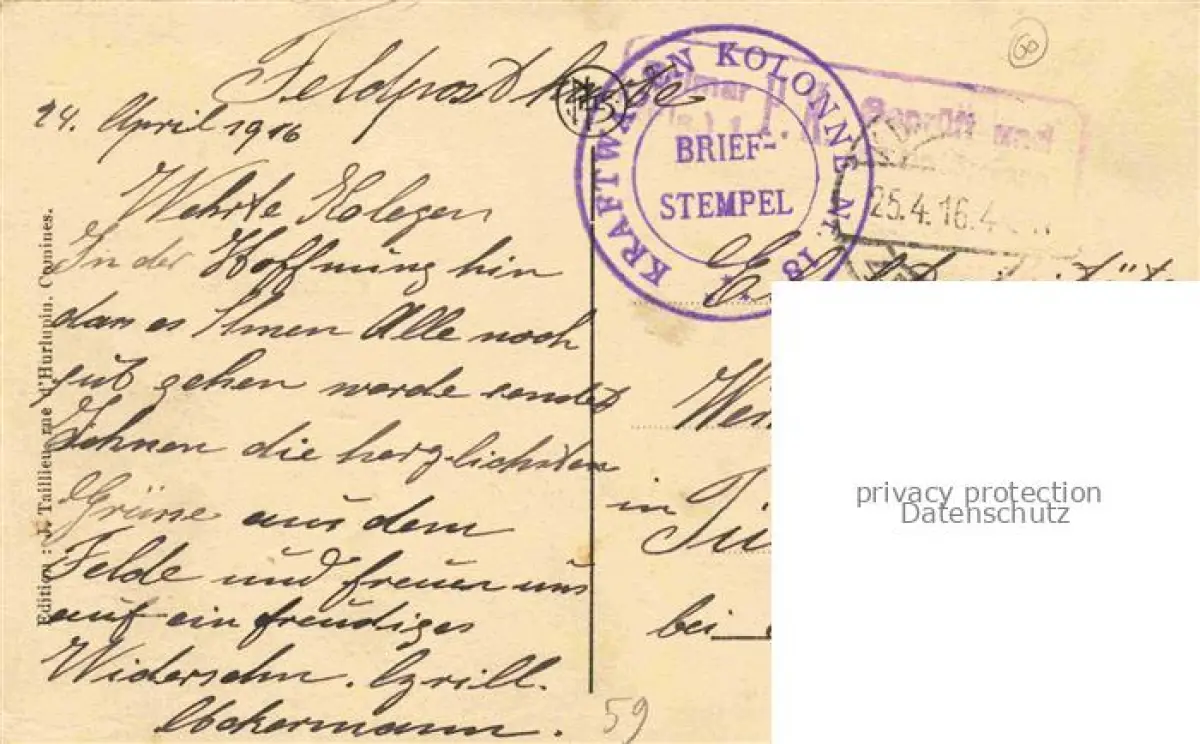 Feldpostkarte
24. April 1916
Werte Kolegen
In der Hoffnung hin
das es Ihnen Alle noch
gut gehen werde sendet
Ihnen die herzlichsten
Grüse aus dem
Felde und freuen uns
auf ein freudiges
Widersehn. Cyrill.
Ackermann.
Edition : J. Taillieu, rue d'Hurlupin. Comines.
KRAFTWAGEN KOLONNE Nr. 18
BRIEF-
STEMPEL
Geprüft und
25.4.16.4
in
bei
59
privacy protection
Datenschutz